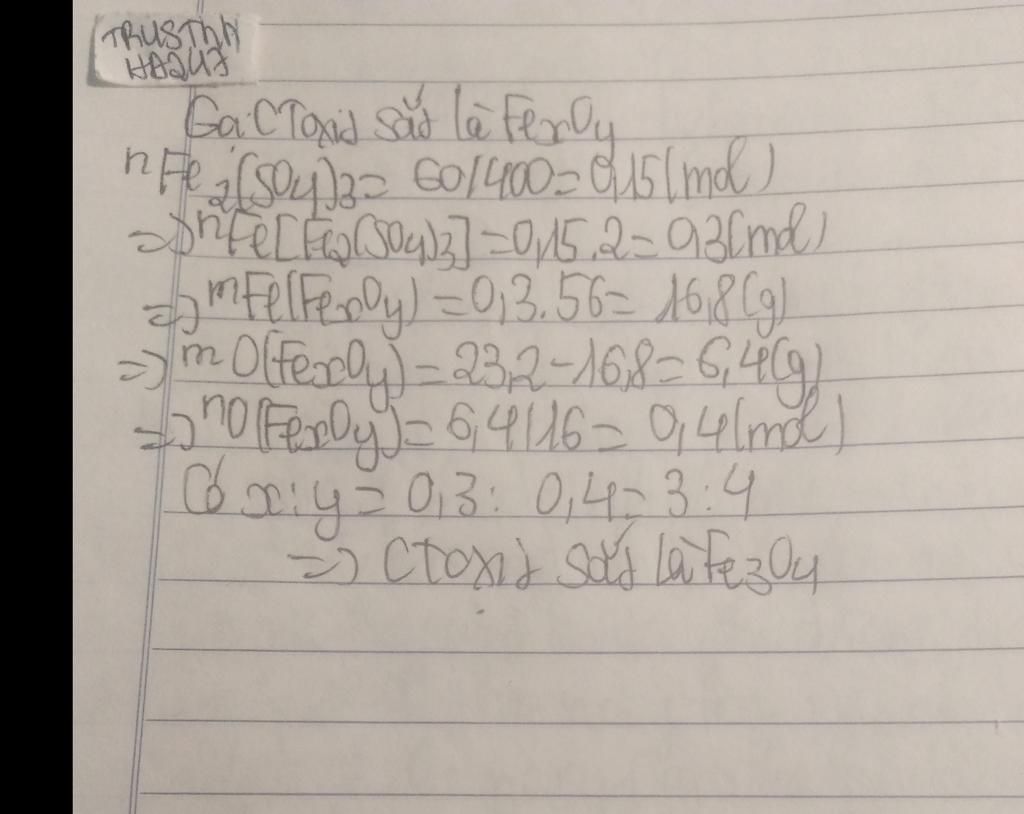 TRUSTNN
HA247
Gọi CT oxit sắt là FexOy
nFe2(SO4)3 = 60/400 = 0,15(mol)
=> nFe[Fe2(SO4)3] = 0,15.2 = 0,3(mol)
=> mFe(FexOy) = 0,3.56 = 16,8(g)
=> mO(FexOy) = 23,2-16,8 = 6,4(g)
=> nO(FexOy) = 6,4/16 = 0,4(mol)
Có x:y = 0,3: 0,4 = 3:4
=> CT oxit sắt là Fe3O4